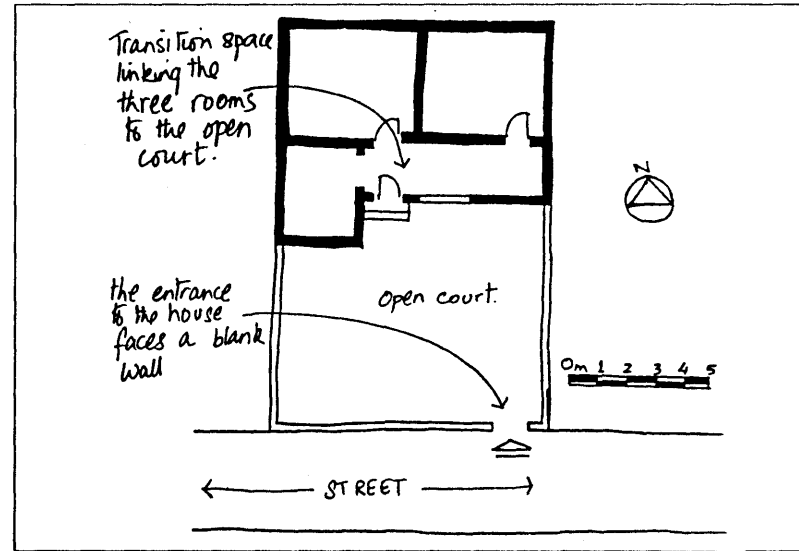 Transition space
linking the
three rooms
to the open
court.
N
the entrance
to the house
faces a blank
wall
Open court.
0m 1 2 3 4 5
STREET